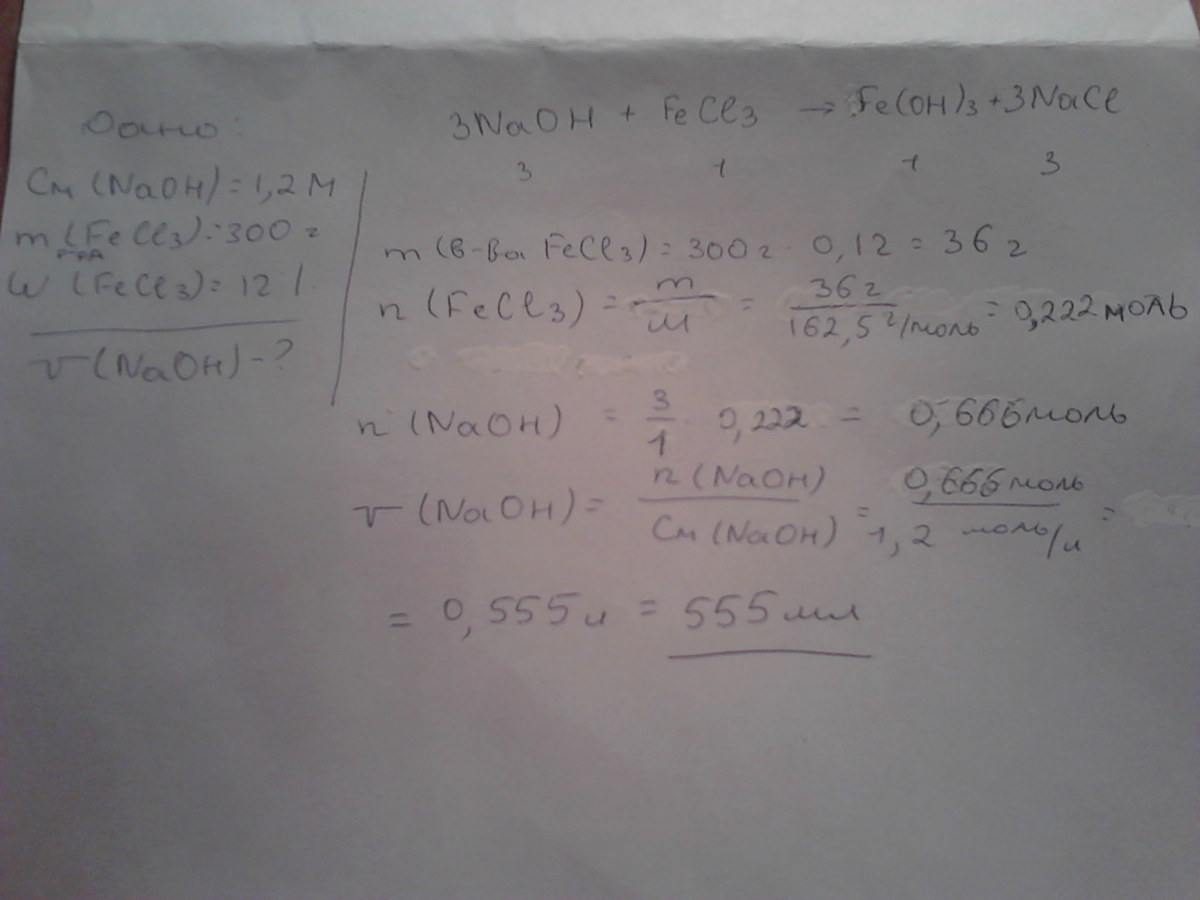 Дано:
Cм (NaOH) = 1,2 М
m (FeCl3) = 300 г
р-ра
W (FeCl3) = 12 %
V (NaOH) - ?
3NaOH + FeCl3 → Fe(OH)3 + 3NaCl
3 1 1 3
m (в-ва FeCl3) = 300 г · 0,12 = 36 г
n (FeCl3) = m/M = 36 г/162,5 г/моль = 0,222 моль
n (NaOH) = 3/1 · 0,222 = 0,666 моль
V (NaOH) = n (NaOH)/Cм (NaOH) = 0,666 моль/1,2 моль/л =
= 0,555 л = 555 мл